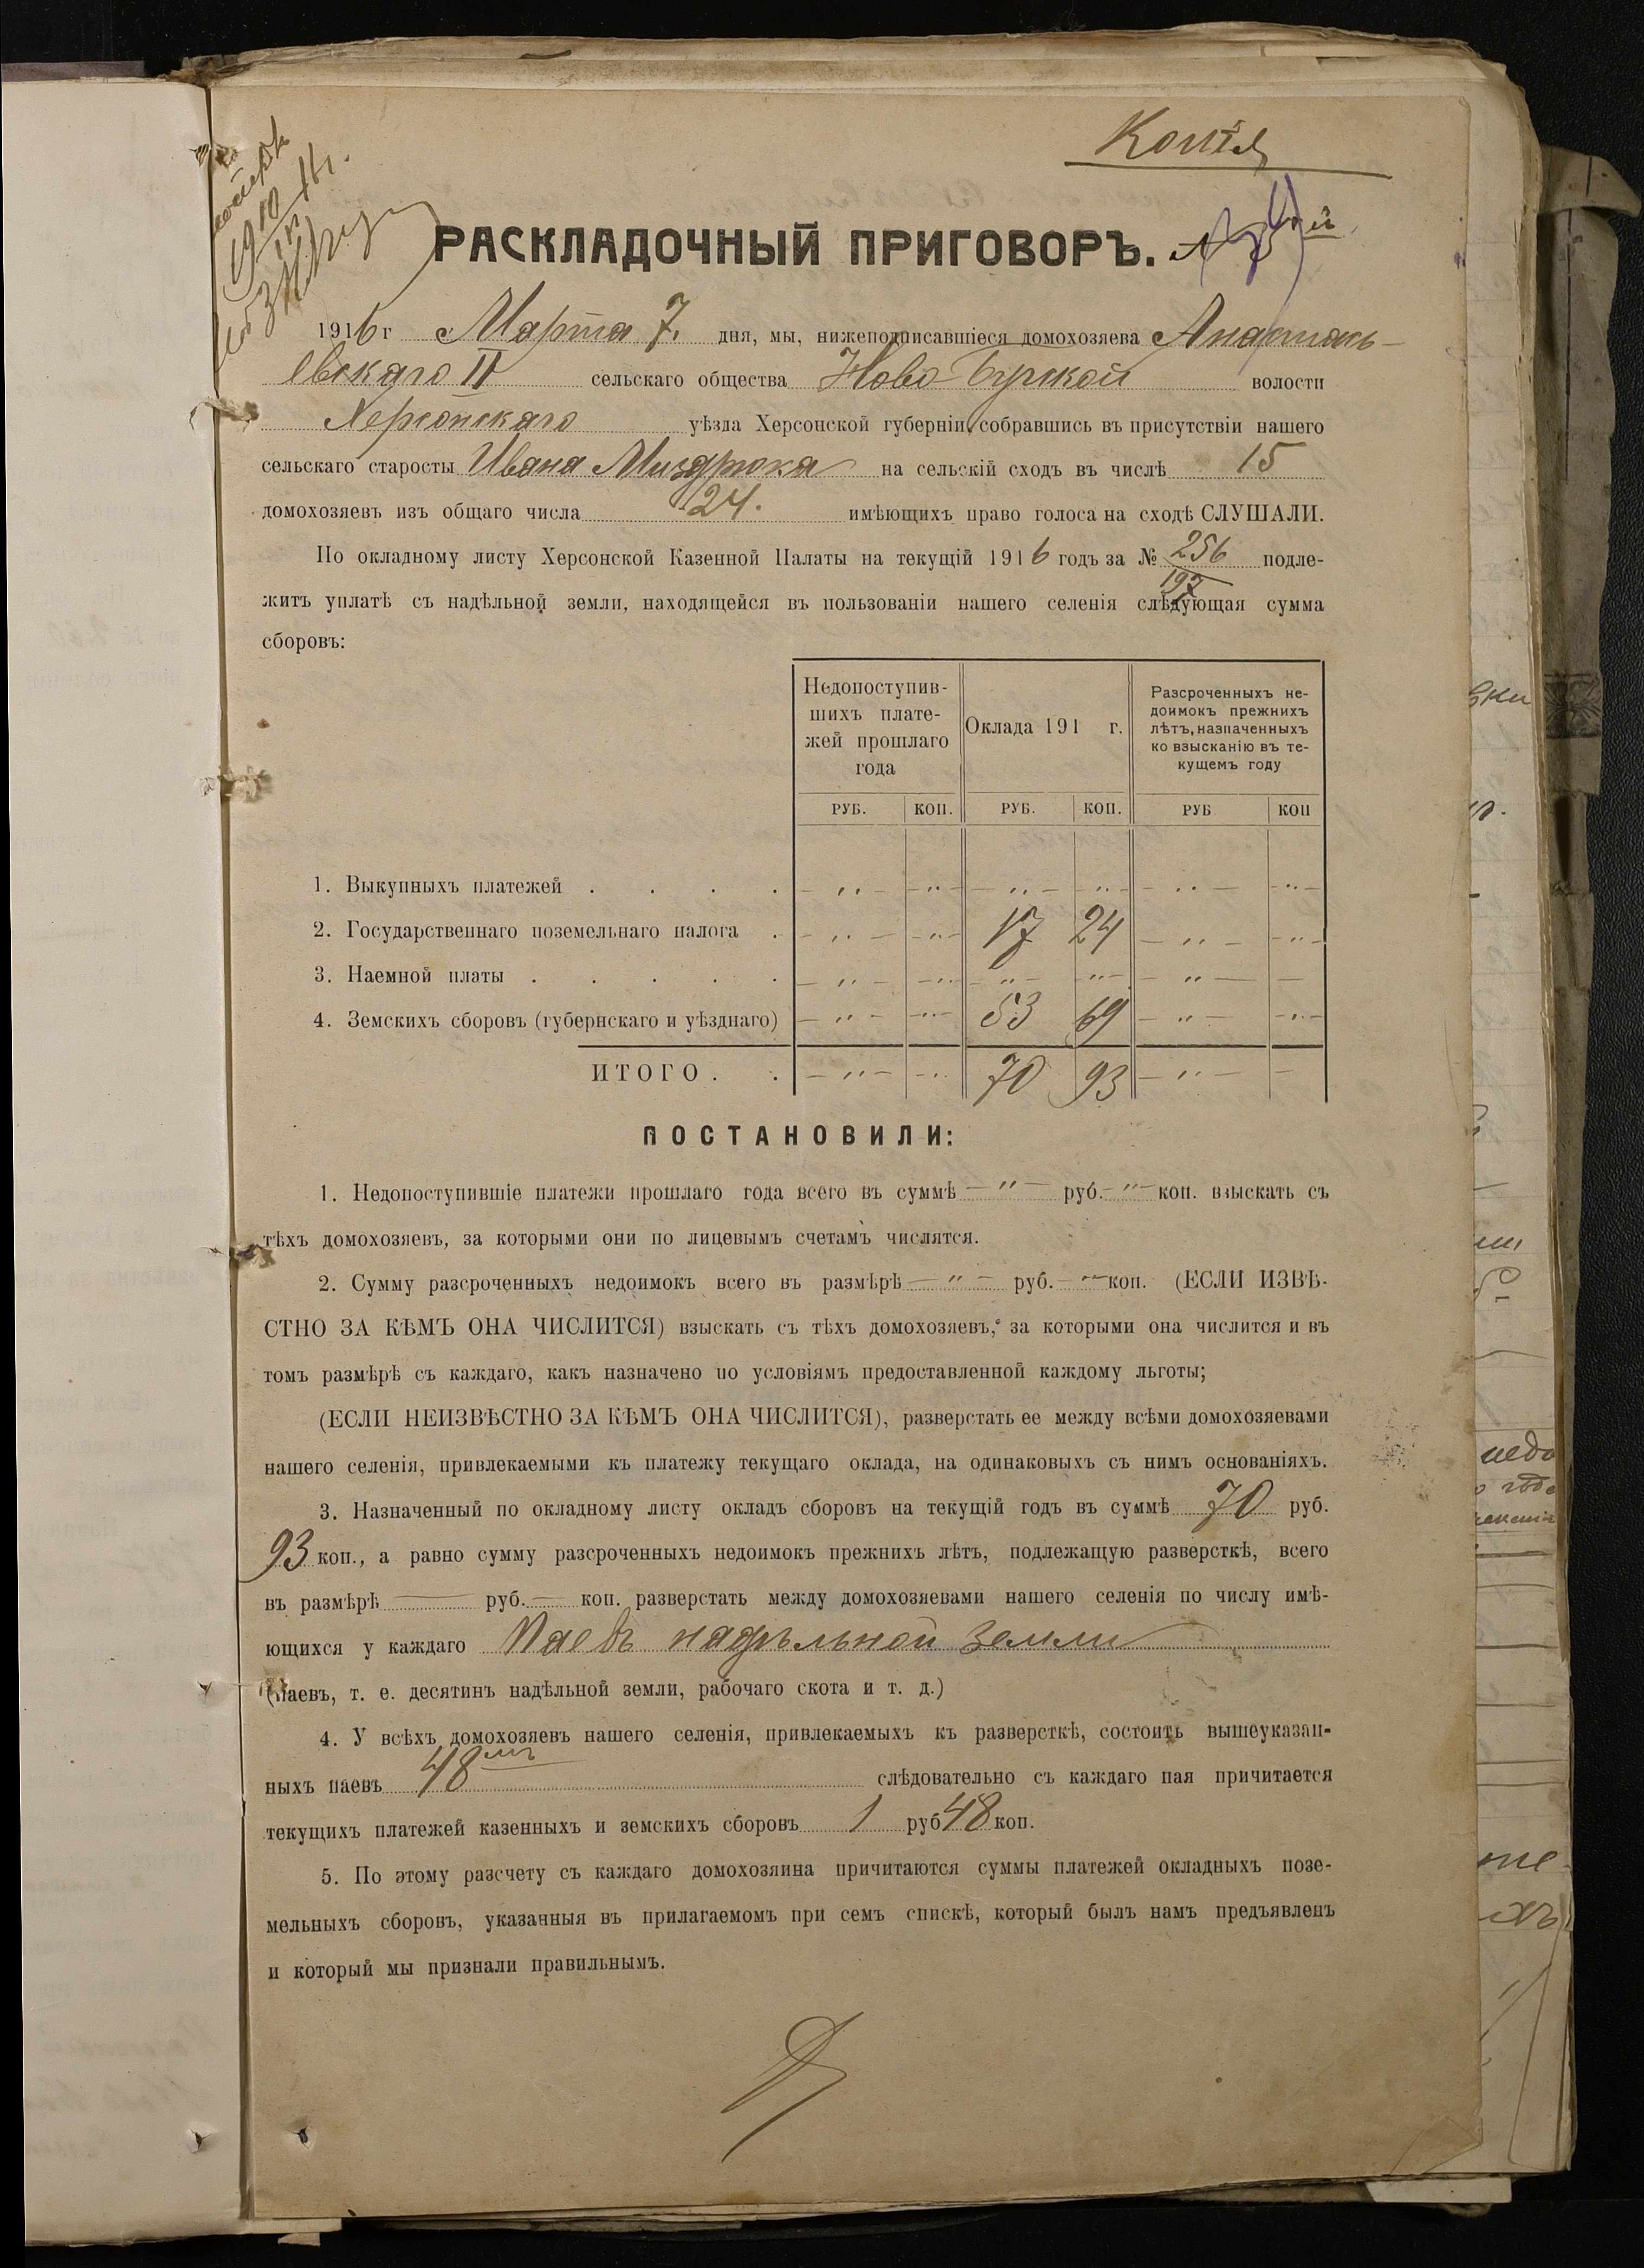 Копія
РАСКЛАДОЧНЫЙ ПРИГОВОРЪ.
1916 г Марта 7. дня, мы, нижеподписавшіеся домохозяева Анастась-
евскаго II сельскаго общества Ново-Бугской волости
Херсонскаго уѣзда Херсонской губерніи, собравшись въ присутствіи нашего
сельскаго старосты Ивана Миздрюка на сельскій сходъ въ числѣ 15
домохозяевъ изъ общаго числа 24. имѣющихъ право голоса на сходѣ СЛУШАЛИ.
По окладному листу Херсонской Казенной Палаты на текущій 1916 годъ за № 256 подле-
197
житъ уплатѣ съ надѣльной земли, находящейся въ пользованіи нашего селенія слѣдующая сумма
сборовъ:
Недопоступив-
шихъ плате-
жей прошлаго
года
Оклада 191 г.
Разсроченныхъ не-
доимокъ прежнихъ
лѣтъ, назначенныхъ
ко взысканію въ те-
кущемъ году
РУБ. КОП. РУБ. КОП. РУБ КОП
1. Выкупныхъ платежей . . . . - „ - - „ - - „ - - „ - - „ - - „ -
2. Государственнаго поземельнаго налога . - „ - - „ - 17 24 - „ - - „ -
3. Наемной платы . . . . . - „ - - „ - - „ - - „ - - „ - -
4. Земскихъ сборовъ (губернскаго и уѣзднаго) - „ - - „ - 53 69 - „ - - „ -
ИТОГО . . - „ - - „ 70 93 - „ - -
ПОСТАНОВИЛИ:
1. Недопоступившіе платежи прошлаго года всего въ суммѣ - „ - руб. - „ - коп. взыскать съ
тѣхъ домохозяевъ, за которыми они по лицевымъ счетамъ числятся.
2. Сумму разсроченныхъ недоимокъ всего въ размѣрѣ - „ - руб. - „ - коп. (ЕСЛИ ИЗВѢ-
СТНО ЗА КѢМЪ ОНА ЧИСЛИТСЯ) взыскать съ тѣхъ домохозяевъ, за которыми она числится и въ
томъ размѣрѣ съ каждаго, какъ назначено по условіямъ предоставленной каждому льготы;
(ЕСЛИ НЕИЗВѢСТНО ЗА КѢМЪ ОНА ЧИСЛИТСЯ), разверстать ее между всѣми домохозяевами
нашего селенія, привлекаемыми къ платежу текущаго оклада, на одинаковыхъ съ нимъ основаніяхъ.
3. Назначенный по окладному листу окладъ сборовъ на текущій годъ въ суммѣ 70 руб.
93 коп., а равно сумму разсроченныхъ недоимокъ прежнихъ лѣтъ, подлежащую разверсткѣ, всего
въ размѣрѣ — руб. — коп. разверстать между домохозяевами нашего селенія по числу имѣ-
ющихся у каждаго Паевъ надѣльной земли
(паевъ, т. е. десятинъ надѣльной земли, рабочаго скота и т. д.)
4. У всѣхъ домохозяевъ нашего селенія, привлекаемыхъ къ разверсткѣ, состоитъ вышеуказан-
ныхъ паевъ 48 слѣдовательно съ каждаго пая причитается
текущихъ платежей казенныхъ и земскихъ сборовъ 1 руб 48 коп.
5. По этому разсчету съ каждаго домохозяина причитаются суммы платежей окладныхъ позе-
мельныхъ сборовъ, указанныя въ прилагаемомъ при семъ спискѣ, который былъ намъ предъявленъ
и который мы признали правильнымъ.